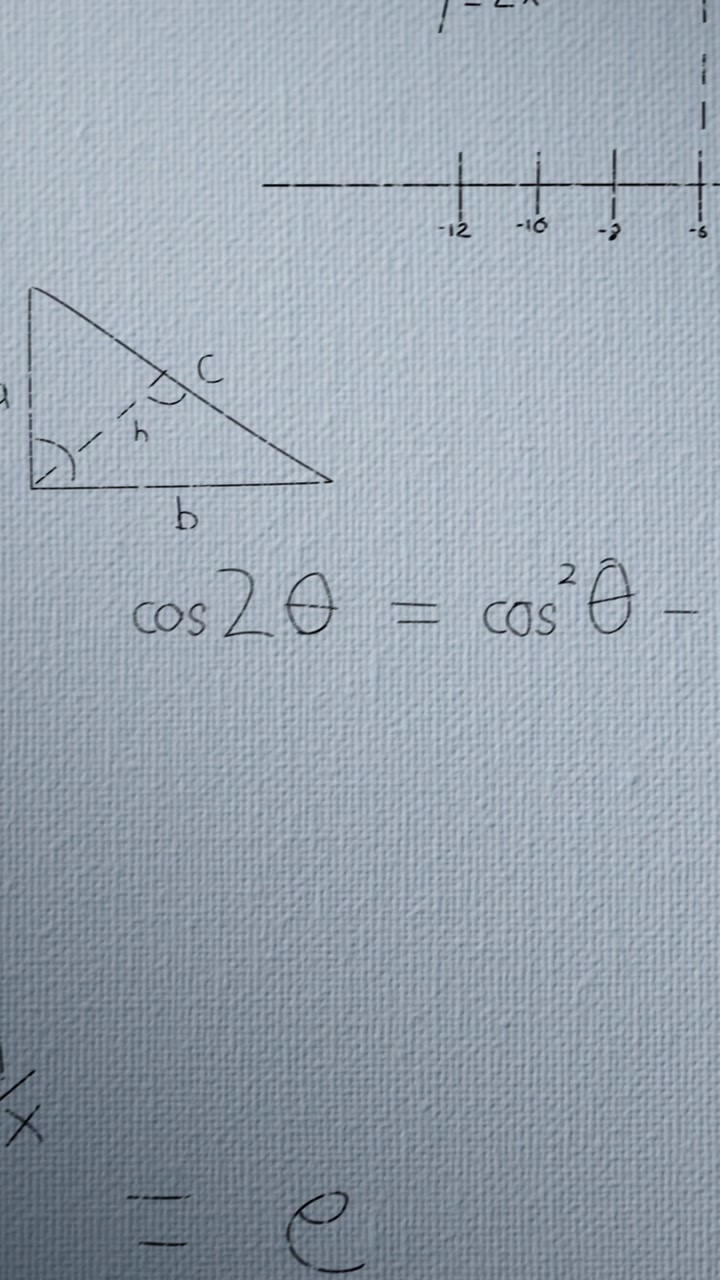 -12 -10 -8 -6
a
c
h
b
cos2θ = cos²θ -
x
= e